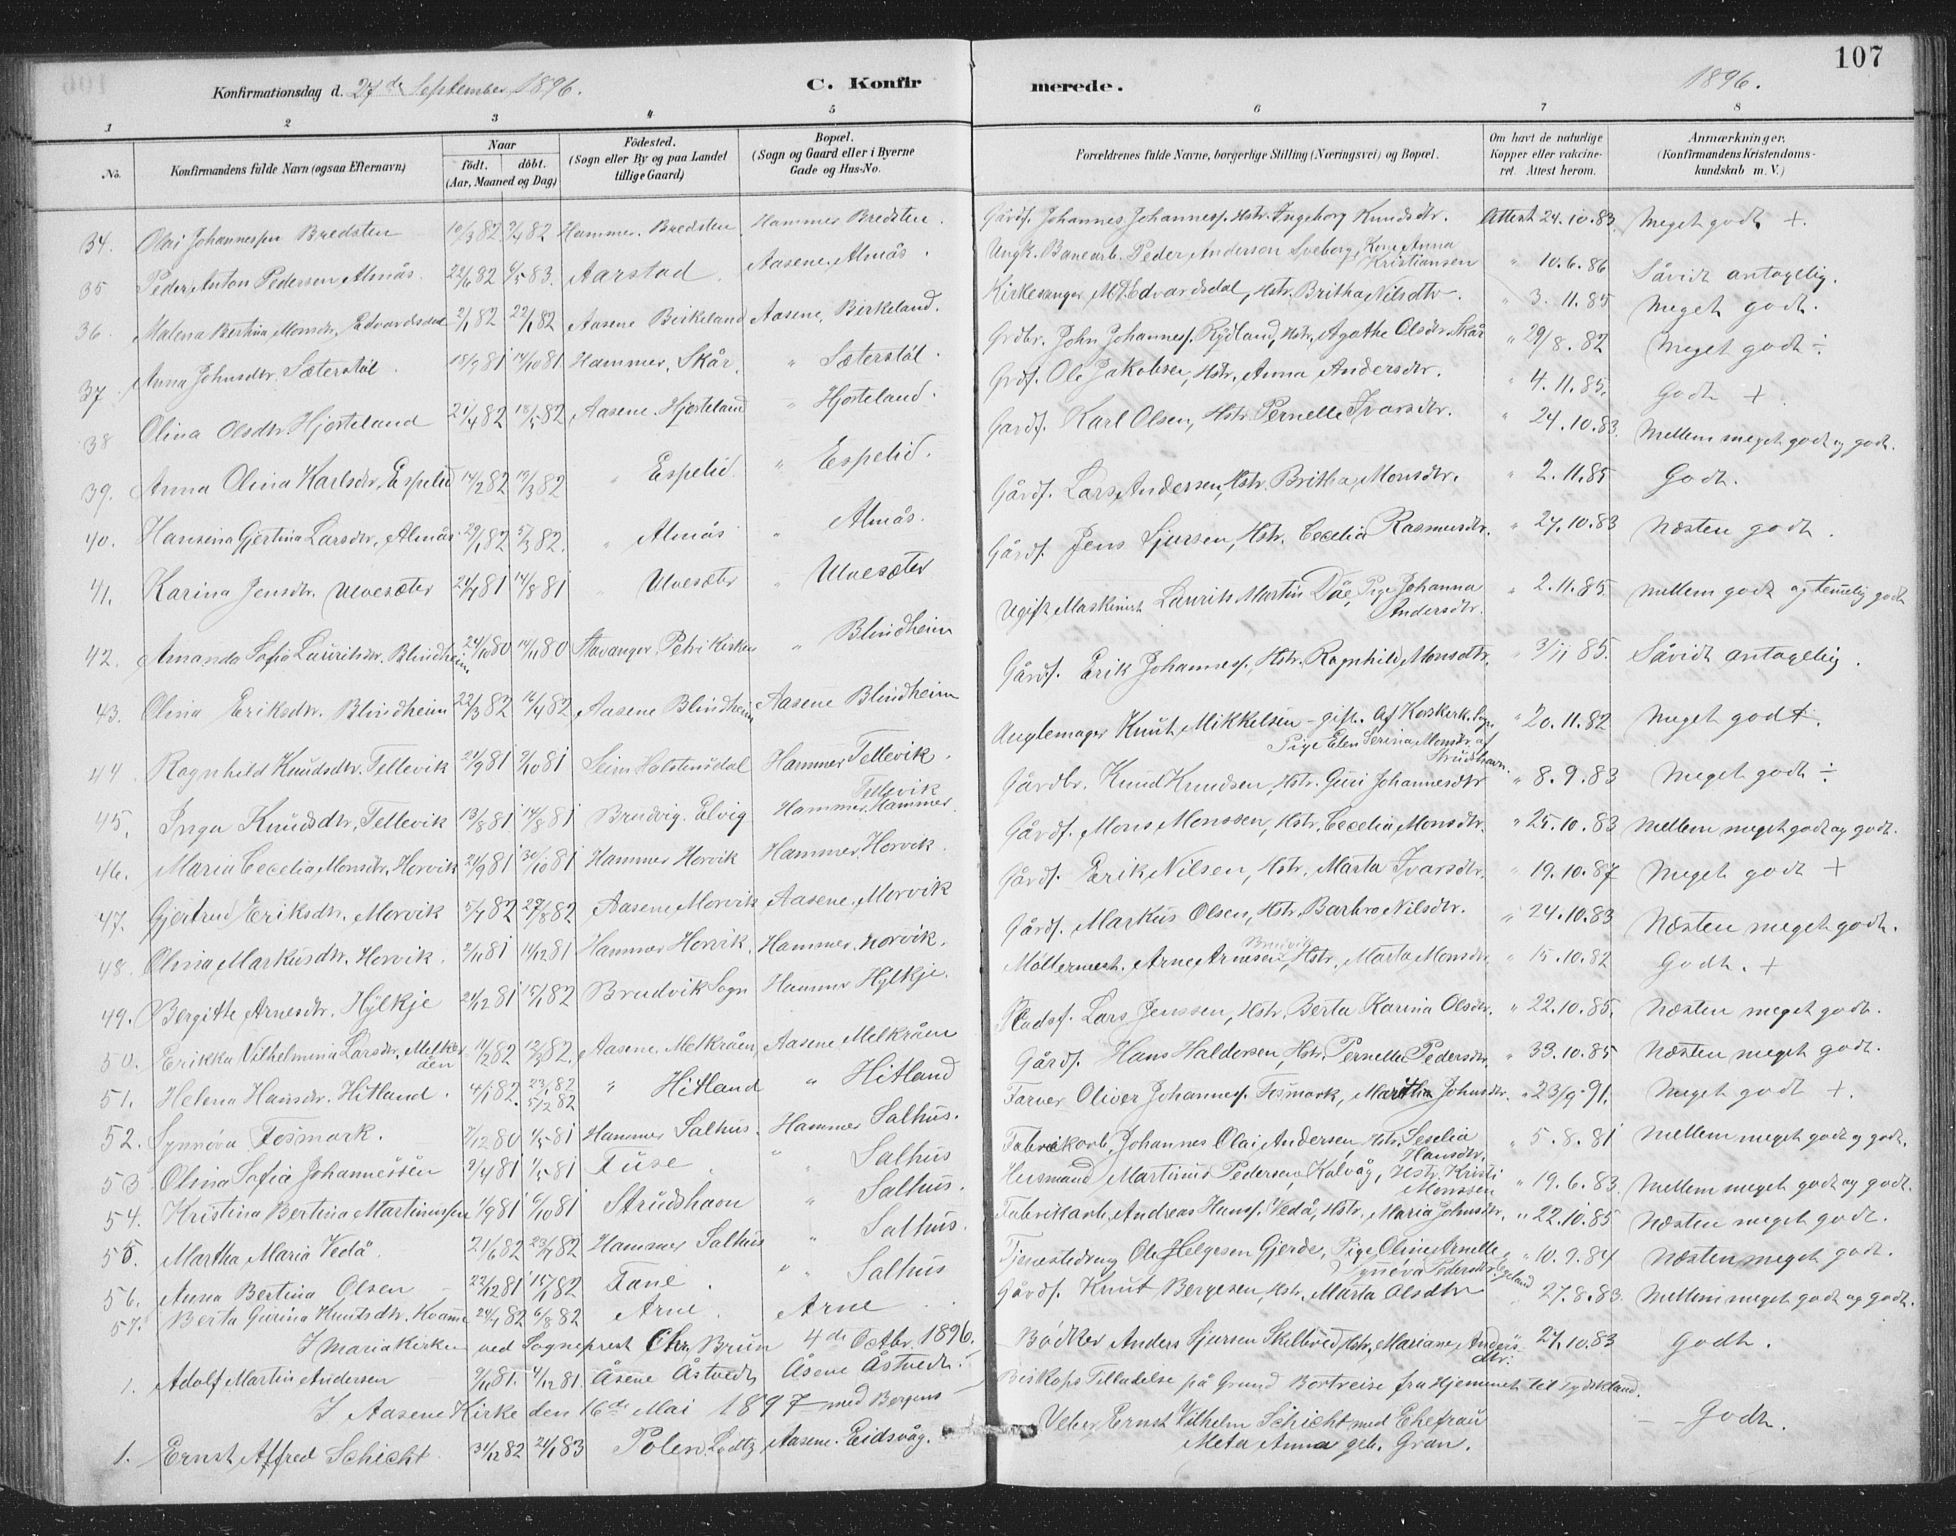 107
Konfirmationsdag d. 27de September 1896. C. Konfirmerede. 1896.
1 2 3 4 5 6 7 8
No. Konfirmandens fulde Navn (ogsaa Efternavn) Naar födt. döbt. (Aar, Maaned og Dag) Födested. (Sogn eller By og paa Landet tillige Gaard) Bopæl. (Sogn og Gaard eller i Byerne Gade og Hus-No. Forældrenes fulde Navne, borgerlige Stilling (Næringsvei) og Bopæl. Om havt de naturlige Kopper eller vakcineret. Attest herom. Anmærkninger, (Konfirmandens Kristendomskundskab m. V.)
34. Olai Johannessen Bredsten 82 82 Hammer. Bredsten Hammer Bredsten. Gårdf. Johannes Johannesf. Hstr. Ingeborg Knudsdtr. Attest 24.10.83 Meget godt +.
35 Peder Anton Pedersen Almås. 22/6 82 6/5 83. Aarstad. Aasene. Almås. Ungk. Banearb. Peder Anderson Sveborg, Kone Anna Kristiansen " 10.6.86 Såvidt antagelig.
36. Malena Bertina Monsdr. Edvardsdal 2/1 82 22/1 82 Aasene Birkeland Aasene, Birkeland. Kirkesanger M. Edvardsdal, Hstr. Britha Nilsdtr. " 3.11.85 Meget godt.
37. Anna Johnsdtr. Sæterstøl. 18/9 81 14/10 81 Hammer, Skår. " Sæterstøl. Grdbr. John Johannesf. Rydland, Hstr. Agathe Olsdtr. Skår " 29/8.82 Meget godt ÷
38 Olina Olsdtr. Hjorteland 21/4 82 18/5 82 Aasene. Hjorteland " Hjorteland. Grdf. Ole Jakobsen, Hstr. Anna Andersdtr. " 4.11.85. Godt +
39. Anna Olina Karlsdtr. Espelid 14/2 82 19/3 82 " Espelid. " Espelid. Gårdf. Karl Olsen, Hstr. Pernelle Ivarsdtr. " 24.10.83. Mellem meget godt og godt.
40. Hansina Gjertina Larsdtr. Almås 29/1 82 5/3 82. " Almås " Almås. Gårdf. Lars Andersen, Hstr. Britha Monsdtr. " 2.11.85 Godt.
41. Karina Jensdtr. Ulvesæter 24/7 81 14/8 81 " Ulvesæter " Ulvesæter Gårdf. Jens Sjursen, Hstr. Cecelia Rasmusdtr. " 27.10.83 Næsten godt.
42. Amanda Sofia Lauritsdtr. Blindheim 24/10 80 14/11 80 Stavanger. Petri Kirken " Blindheim Ugift Maskinist Laurits Martin Döe, Pige Johanna Andersdtr. " 2.11.85. Mellem godt og temelig godt
43. Olina Eriksdtr. Blindheim 22/3 82 16/4 82 Aasene Blindheim Aasene Blindheim Gårdf. Erik Johannesf. Hstr. Ragnhild Monsdtr. " 3/11 85. Såvidt antagelig.
44 Ragnhild Knudsdtr. Tellevik 24/9 81 9/10 81 Seim Holstensdal Hammer Tellevik. Knut Mikkelsen - gift. Af Korskirk. Sogn. Pige Elen Serina Monsdtr. af Strudshavn. " 20.11.82 Meget godt.
45. Inga Knudsdtr. Tellevik 13/8 81 14/8 81 Brudvig. Elvig Hammer. Hammer. Tellevik Gårdbr. Knud Knudsen, Hstr. Guri Johannesdtr " 8.9.83 Meget godt ÷
46. Maria Cecelia Monsdtr. Horvik 21/9 81 30/10 81 Hammer Horvik Hammer Horvik. Gårdf. Mons Monssen, Hstr. Cecelia Monsdtr. " 25.10.83 Mellem meget godt og godt.
47. Gjertrud Eriksdtr. Morvik 5/7 82 27/8 82 Aasene Morvik Aasene, Morvik Gårdf. Erik Nilsen, Hstr. Marta Ivarsdtr. " 19.10.87 Meget godt +
48. Olina Markusdtr. Horvik. 2/11 81 11/12 81 Hammer Horvik. Hammer. Horvik. Gårdf. Markus Olsen, Hstr. Barbro Nilsdtr. " 24.10.83 Næsten meget godt.
49. Bergitte Arnesdtr. Hylkje 21/12 81 15/1 82 Brudvik Sogn Hammer Hylkje. Møllermest. Arne Arnesen, Brudvig Hstr. Marta Monsdtr. " 15.10.82 Godt. +
50. Erikka Vilhelmina Larsdtr. Melkeråen 11/2 82 12/3 82. Aasene. Melkråen Aasene Melkråen Pladsf. Lars Jenssen, Hstr. Berta Karina Olsdtr. " 22.10.85. Næsten meget godt.
51. Helena Hansdtr. Hitland. 4/1 82. 23/1 82 5/2 82 " Hitland " Hitland Gårdf. Hans Haldersen, Hstr. Pernelle Pedersdtr. " 33.10.85 Næsten meget godt.
52. Synnöva Fosmark. 7/12 80 1/5 81 Hammer Salhus. Hammer Salhus. Farver Oliver Johannesf. Fosmark, Maritha Johnsdtr. " 23/9.91. Meget godt +.
53 Olina Sofia Johannessen 9/4 81 1/5 81 Fuse. " Salhus Fabrikarb. Johannes Olai Andersen, Hstr. Seselia Hansdtr. " 5.8.81 Mellem meget godt og godt.
54. Kristina Bertina Martinussen 1/9 81 6/10 81 Strudshavn " Salhus. Husmand Martinus Pedersen, Kalvåg, Hstr. Kristi Monssen " 19.6.83. Mellem meget godt og godt.
55. Martha Maria Vedå. 21/6 82 23/7 82 Hammer Salhus " Salhus. Fabrikarb. Andreas Hansf. Vedå, Hstr. Maria Johnsdtr. " 22.10.85 Næsten meget godt.
56. Anna Bertina Olsen 22/12 81 82 Fane. " Salhus Tjenestedreng Ole Helgesen Gjerde, Pige Oline Arnette Synnöva Pedersdtr. Egeland " 10.9.84 Næsten meget godt.
57. Berta Gurina Knutsdtr. Kvamme 24/7 82 6/8 82 Arne. Arne Gårdf. Knut Bergesen, Hstr. Marta Olsdtr 27.8.83. Mellem meget godt og godt.
I Mariakirken ved Sogneprest Chr. Brun 4de Octbr. 1896.
1. Adolf Martin Andersen 9/11 81. 4/12 81 Åsene Åstvedt Åsene Åstvedt. Bödker Anders Sjursen Skeltvedt, Hstr. Mariane Andersdtr. 27.10.83 Godt.
I Aasene Kirke den 16de Mai 1897 - med Bergens Biskops Tilladelse på Grund Bortreise fra Hjemmet til Tydskland.
1. Ernst Alfred Schicht 31/12 82 21/1 83 Polen Lodtz Aasene. Eidsvåg. Veber Ernst Vilhelm Schicht med Ehefrau Meta Anna geb. Gran. - - Godt.